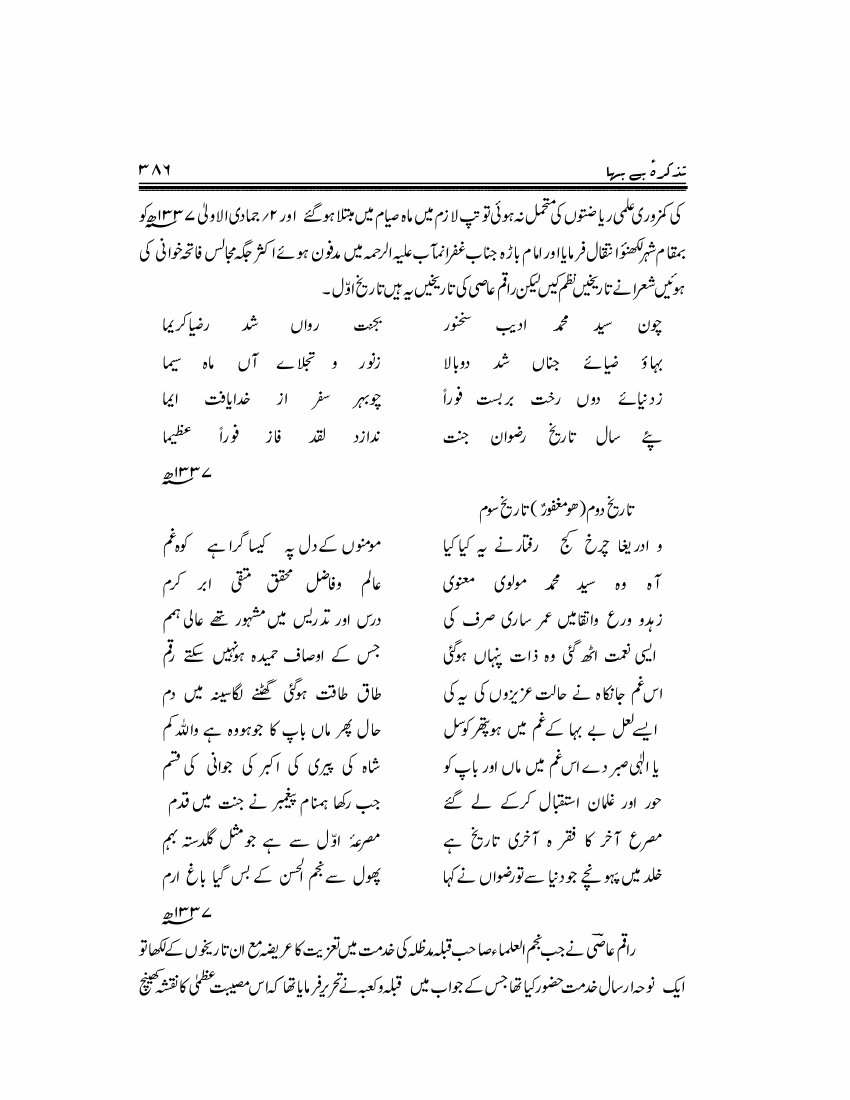 تذکرۂ بے بہا ۳۸۶
کی کمزوری علمی ریاضتوں کی متحمل نہ ہوئی تو تپ لازم میں ماہ صیام میں مبتلا ہوگئے اور ۲؍ جمادی الاولیٰ ۱۳۳۷ھ کو
بمقام شہر لکھنؤ انتقال فرمایا اور امام باڑہ جناب غفرانمآب علیہ الرحمہ میں مدفون ہوئے اکثر جگہ مجالس فاتحہ خوانی کی
ہوئیں شعرا نے تاریخیں نظم کیں لیکن راقم عاصی کی تاریخیں یہ ہیں تاریخ اوّل ۔
چون سید محمد ادیب سخنور بجنت رواں شد رضیا کریما
بہاؤ ضیائے جناں شد دوبالا زنور و تجلاے آں ماہ سیما
زدنیائے دوں رخت بربست فوراً چوبہر سفر از خدایافت ایما
پئے سال تاریخ رضوان جنت ندازد لقد فاز فوراً عظیما
۱۳۳۷ھ
تاریخ دوم (ھومغفورٌ) تاریخ سوم
و ادریغا چرخ کج رفتار نے یہ کیا کیا مومنوں کے دل پہ کیسا گرا ہے کوہ غم
آہ وہ سید محمد مولوی معنوی عالم وفاضل محقق متقی ابر کرم
زہدو ورع واتقامیں عمر ساری صرف کی درس اور تدریس میں مشہور تھے عالی ہمم
ایسی نعمت اٹھ گئی وہ ذات پنہاں ہوگئی جس کے اوصاف حمیدہ ہونہیں سکتے رقم
اس غم جانکاہ نے حالت عزیزوں کی یہ کی طاق طاقت ہوگئی گھٹنے لگاسینہ میں دم
ایسے لعل بے بہا کے غم میں ہو پتھر کوسل حال پھر ماں باپ کا جو ہووہ ہے واللہ کم
یا الٰہی صبر دے اس غم میں ماں اور باپ کو شاہ کی پیری کی اکبر کی جوانی کی قسم
حور اور غلمان استقبال کرکے لے گئے جب رکھا ہمنام پیغمبر نے جنت میں قدم
مصرع آخر کا فقرہ آخری تاریخ ہے مصرعۂ اوّل سے ہے جو مثل گلدستہ بہم
خلد میں پہونچے جو دنیا سے تورضواں نے کہا پھول سے نجم الحسن کے بس گیا باغ ارم
۱۳۳۷ھ
راقم عاصیؔ نے جب نجم العلماء صاحب قبلہ مدظلہ کی خدمت میں تعزیت کا عریضہ مع ان تاریخوں کے لکھا تو
ایک نوحہ ارسال خدمت حضور کیا تھا جس کے جواب میں قبلہ وکعبہ نے تحریر فرمایا تھا کہ اس مصیبت عظمٰی کا نقشہ کھینچ